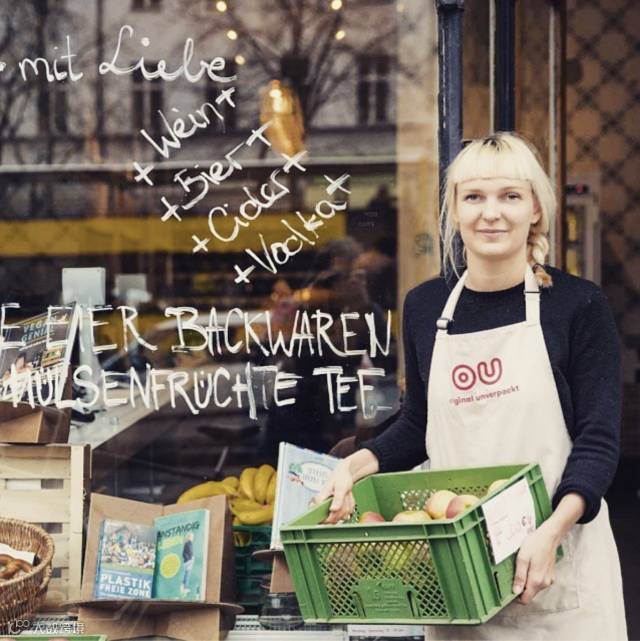 mit Liebe
+ Wein +
+ Bier +
+ Cider +
+ Vodka +
E EIER BACKWAREN
HÜLSENFRÜCHTE TEE
VEGAN
GENIAL
OU
original unverpackt
PLASTIK
FREIE ZONE
ANSTÄNDIG
大数跨境